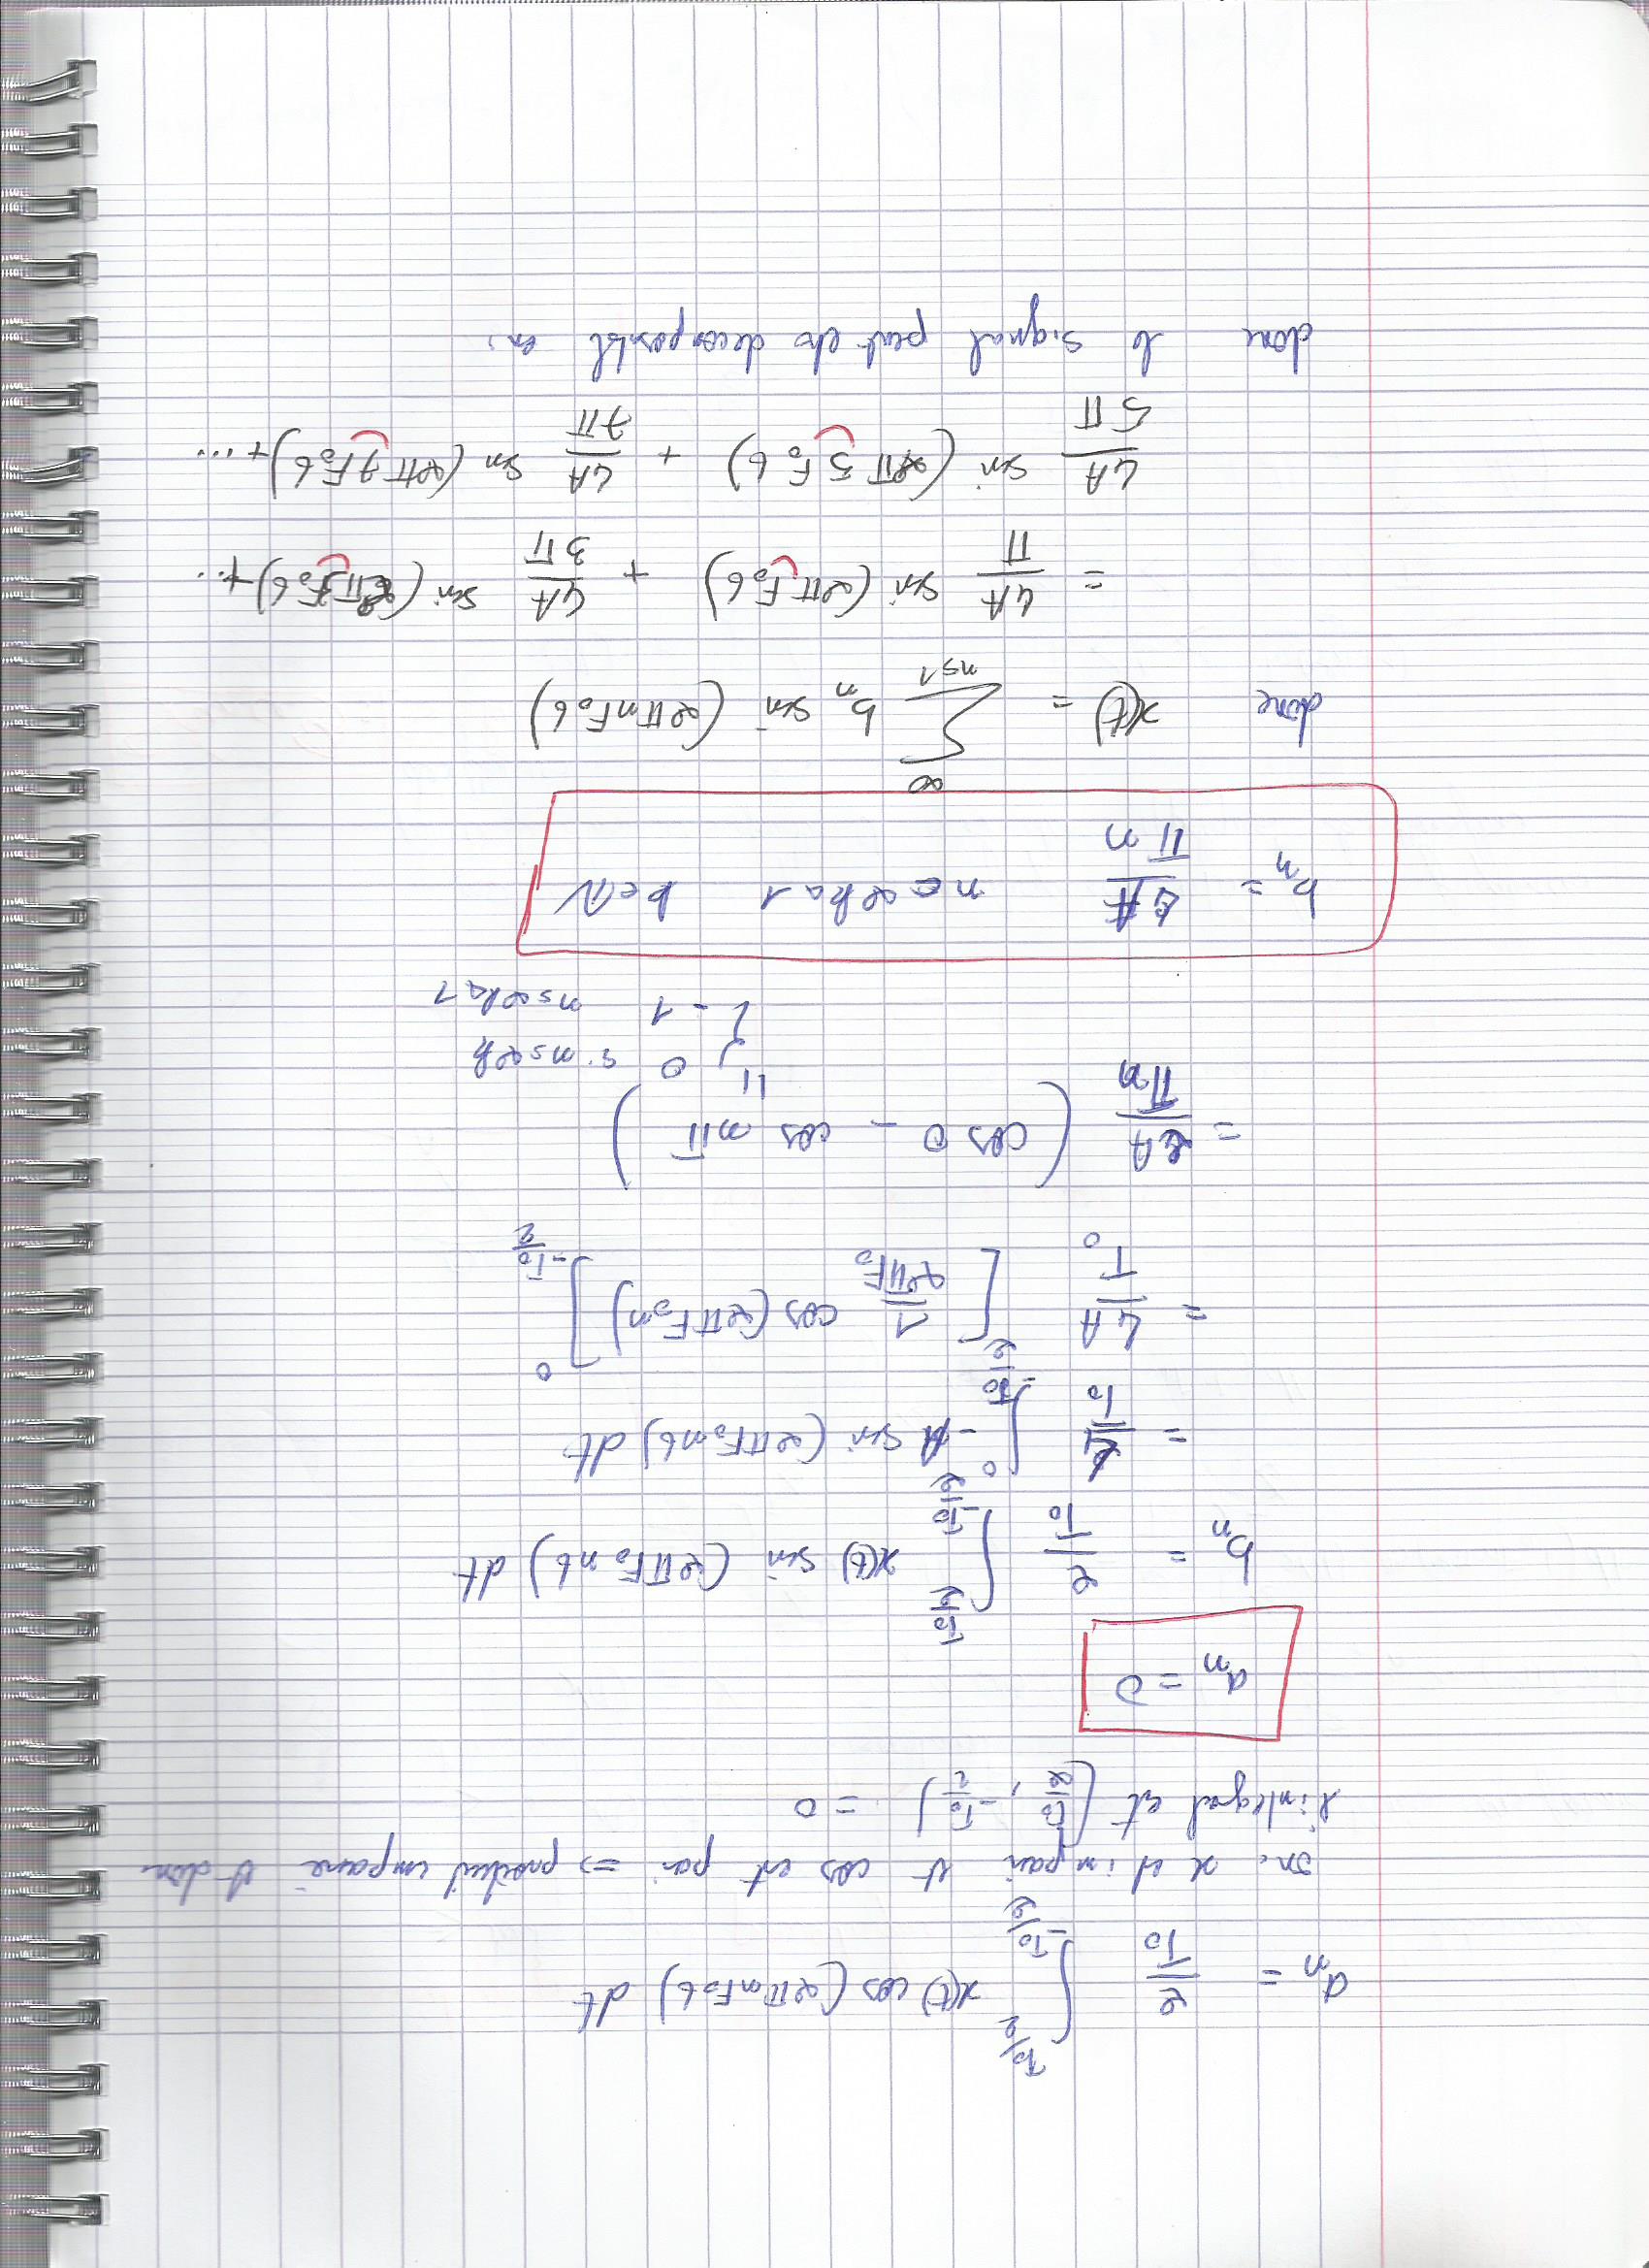 a_n = 2/T0 ∫_{-T0/2}^{T0/2} x(t) cos(2πnF0t) dt
on. x et impair et cos est pair => produit impaire et donc
l'integral est (T0/2, -T0/2) = 0
a_n = 0
b_n = 2/T0 ∫_{-T0/2}^{T0/2} x(t) sin(2πF0nt) dt
= 4/T0 ∫_{-T0/2}^{0} -A sin(2πF0nt) dt
= 4A/T0 [1/2πF0 cos(2πF0n)]_{-T0/2}^{0}
= 2A/πn (cos 0 - cos nπ)
{ 0 si n=2k
{ -1 n=2k+1
b_n = 4A/πn n=2k+1 k∈N
donc x(t) = Σ_{n=1}^{∞} b_n sin(2πnF0t)
= 4A/π sin(2πF0t) + 4A/3π sin(2π3F0t)+..
4A/5π sin(2π5F0t) + 4A/7π sin(2π7F0t)+...
donc le signal peut etre decomposé en: